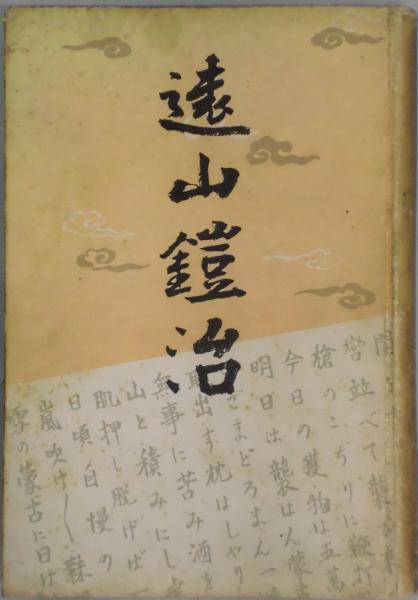 遠山鎧治
轡並べて襲
槍のこぢりに鞭打
今日の獲物は五萬
明日は襲はん蒙古
さまどろまん一
取出す枕はしやり
無事に苦み酒を
山と積みにし
肌押し脱げば
日頃自慢の
嵐吹け
雪の蒙古に日は